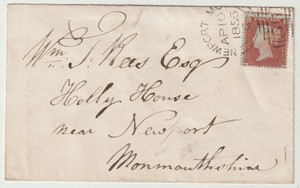 Wm S. Rees Esq
Holly House
near Newport
Monmouthshire
NEWPORT M
AP10
1855